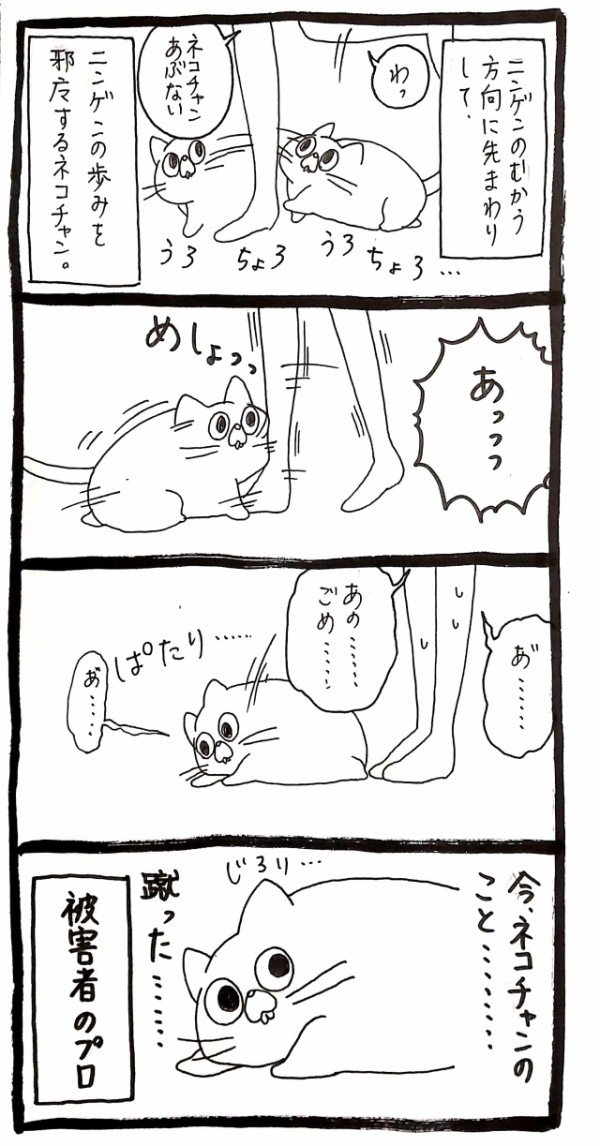 ニンゲンのむかう
方向に先まわり
して、
わっ
ネコチャン
あぶない
うろ
ちょろ
うろ
ちょろ…
ニンゲンの歩みを
邪广するネコチャン。
あっっっ
めしょっっ
あ゛………
あの……
ごめ………
ぱたり……
あ゛……
今、ネコチャンの
こと………
じろり…
蹴った………
被害者のプロ